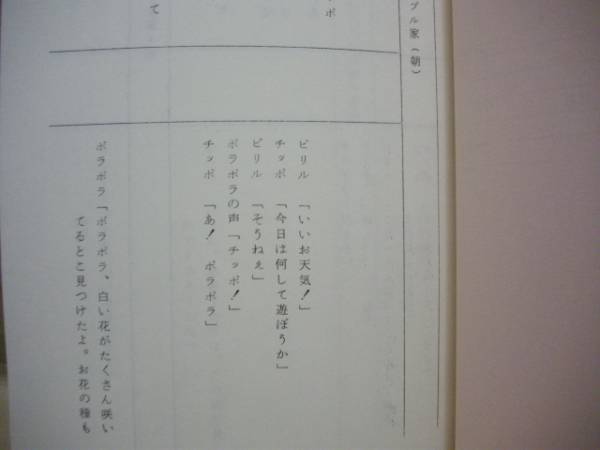 プル家(朝)
ビリル 「いいお天気!」
チッポ 「今日は何して遊ぼうか」
ビリル 「そうねぇ」
ポラポラの声「チッポ!」
チッポ 「あ! ポラポラ」
ポラポラ「ポラポラ、白い花がたくさん咲い
てるとこ見つけたよ。お花の種も
ポ
て